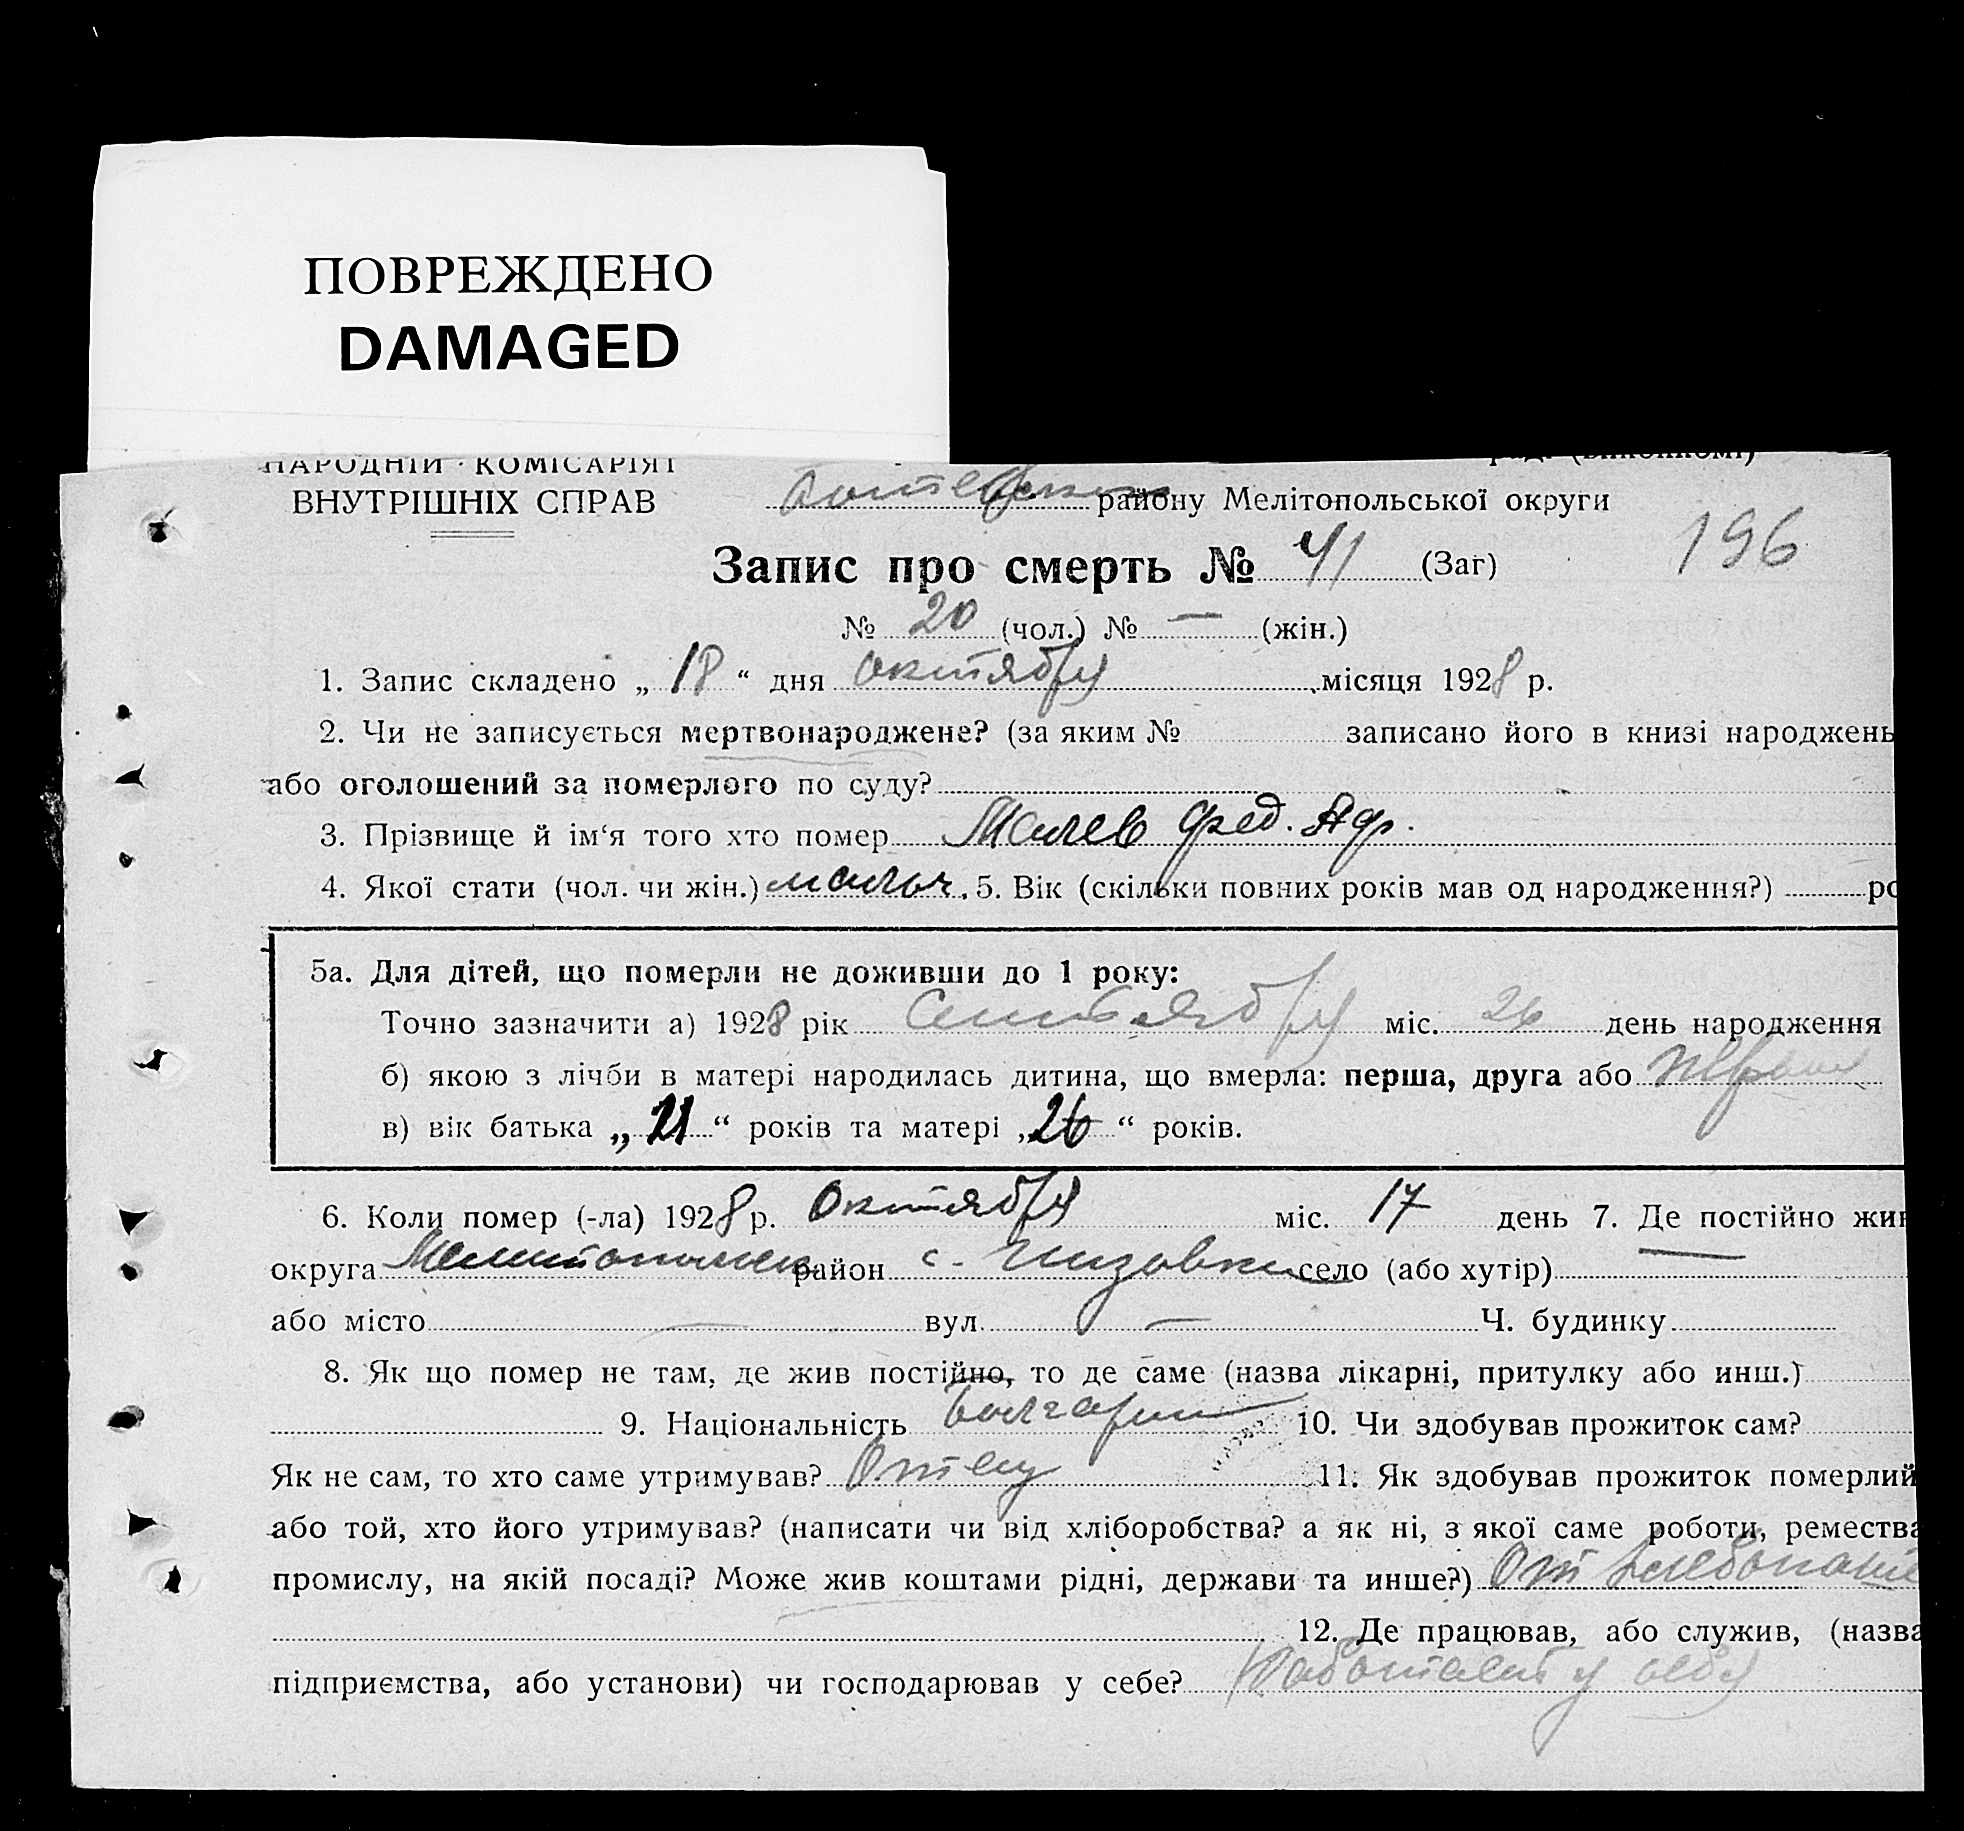 ПОВРЕЖДЕНО
DAMAGED
НАРОДНІЙ КОМІСАРІЯТ
ВНУТРІШНІХ СПРАВ
району Мелітопольської округи
Запис про смерть № 41 (Заг) 196
№ 20 (чол.) № — (жін.)
1. Запис складено „ 18 “ дня октября місяця 1928 р.
2. Чи не записується мертвонароджене? (за яким № записано його в книзі народжень
або оголошений за померлого по суду?
3. Прізвище й ім‘я того хто помер Малев Фред. Яф.
4. Якої статі (чол. чи жін.) мальч. 5. Вік (скільки повних років мав од народження?) ро
5а. Для дітей, що померли не доживши до 1 року:
Точно зазначити а) 1928 рік Сентября міс. 26 день народження
б) якою з лічби в матері народилась дитина, що вмерла: перша, друга або
в) вік батька „ 21 “ років та матері „ 26 “ років.
6. Коли помер (-ла) 1928 р. Октября міс. 17 день 7. Де постійно жив
округа район с. село (або хутір)
або місто — вул. — Ч. будинку
8. Як що помер не там, де жив постійно, то де саме (назва лікарні, притулку або инш.)
9. Національність Болгарин 10. Чи здобував прожиток сам?
Як не сам, то хто саме утримував? Отец 11. Як здобував прожиток померлий
або той, хто його утримував? (написати чи від хліборобства? а як ні, з якої саме роботи, ремества
промислу, на якій посаді? Може жив коштами рідні, держави та инше?) От хлебопаше
12. Де працював, або служив, (назва
підприємства, або установи) чи господарював у себе? Работает у себя